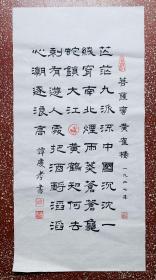 菩薩蠻黄鶴樓
茫茫九派流中國沉沉一
綫穿南北煙雨莽蒼蒼龜
蛇鎖大江黃鶴知何去
剩有遊人處把酒酹滔滔
心潮逐浪高 書